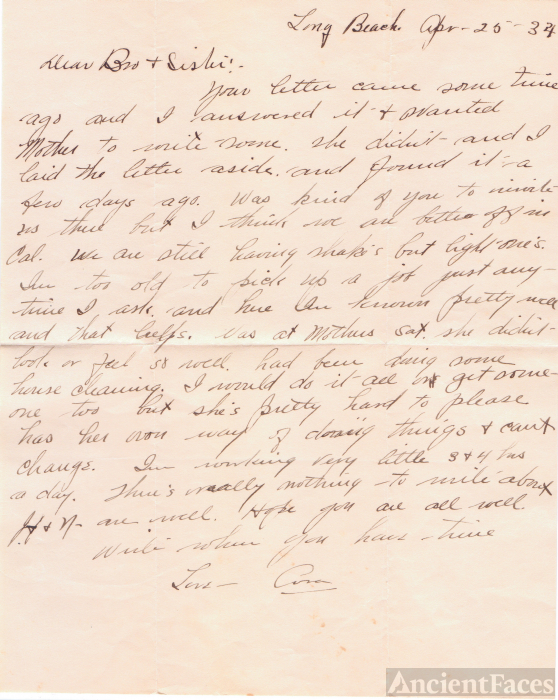 Long Beach. Apr - 25 - 34
Dear Bro + Sister:-
Your letter came some time
ago and I answered it + wanted
Mother to write some. she didn't - and I
laid the letter aside. and found it a
few days ago. Was kind of you to invite
us there but I think we are better off in
Cal. We are still having shakes but light one's.
I'm too old to pick up a job just any-
time I ask. and here I'm known pretty well
and that helps. Was at Mothers Sat. she didn't
look or feel so well. had been doing some
house cleaning. I would do it all or get some-
one too but she's pretty hard to please
has her own way of doing things + can't
change. I'm working very little 3 + 4 hrs
a day. There's really nothing to write about
H + N - are well. Hope you are all well.
Write when you have time
Love - Cora
AncientFaces